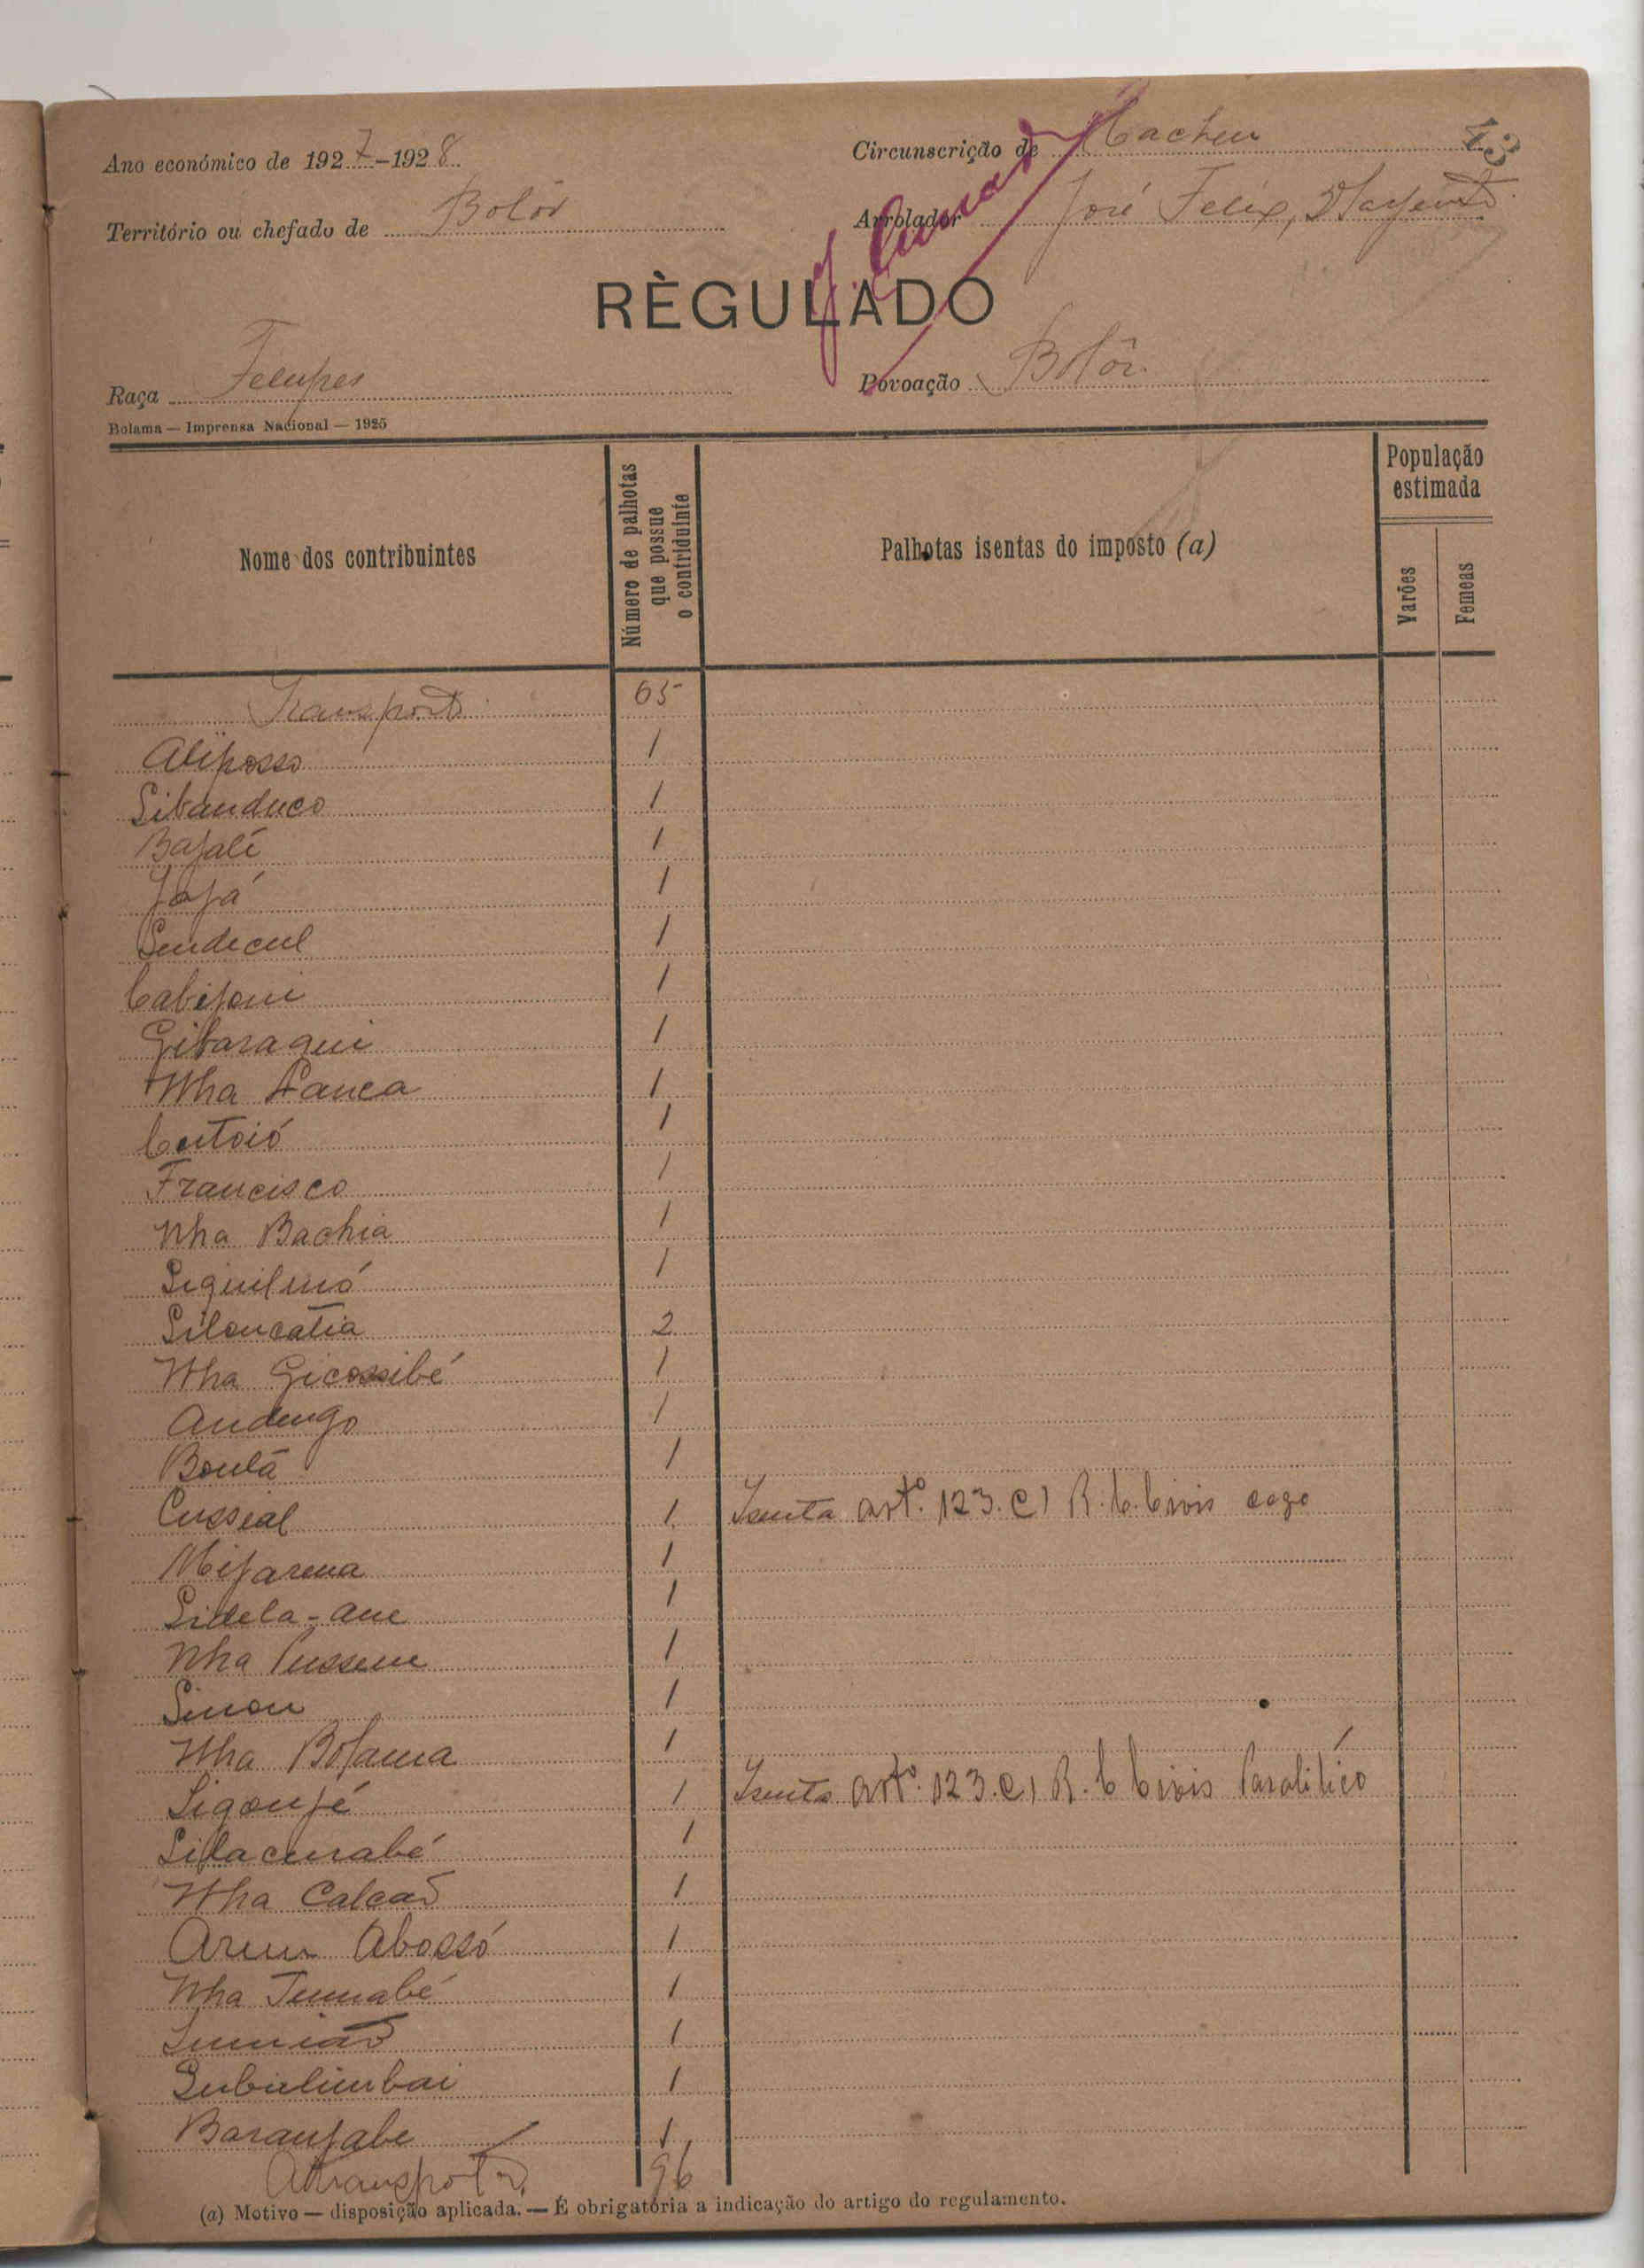 Ano económico de 1927-1928
Circunscrição de Cacheu
43
Território ou chefado de Bolôr
Arrolador José Felix, Sargento
RÈGULADO
Raça Felupes
Povoação Bolôr
Bolama — Imprensa Nacional — 1925
Nome dos contribuintes
Número de palhotas que possue o contriduinte
Palhotas isentas do imposto (a)
População estimada
Varões
Femeas
Transporte 65
Aliposso 1
Sibanduco 1
Bajali 1
Jajá 1
Sendecul 1
Cabejoni 1
Gibaraqui 1
Nha Panca 1
Cutoió 1
Francisco 1
Nha Bachia 1
Siquilnó 1
Siloucatia 2
Nha Gicossibé 1
Andengo 1
Boulá 1
Cussial 1 Isenta artº. 123. C) R. C. Civis cego
Mijarena 1
Sidela-ane 1
Nha Cussene 1
Sinon 1
Nha Bolama 1
Sigonjé 1 Isenta artº. 123. C) R. C Civis Paralitico
Silacunabé 1
Nha Calcaõ 1
Arun Abossó 1
Nha Jumabé 1
Sumiaõ 1
Subulimbai 1
Baranjabe 1
A transportar 96
(a) Motivo — disposição aplicada. — É obrigatória a indicação do artigo do regulamento.